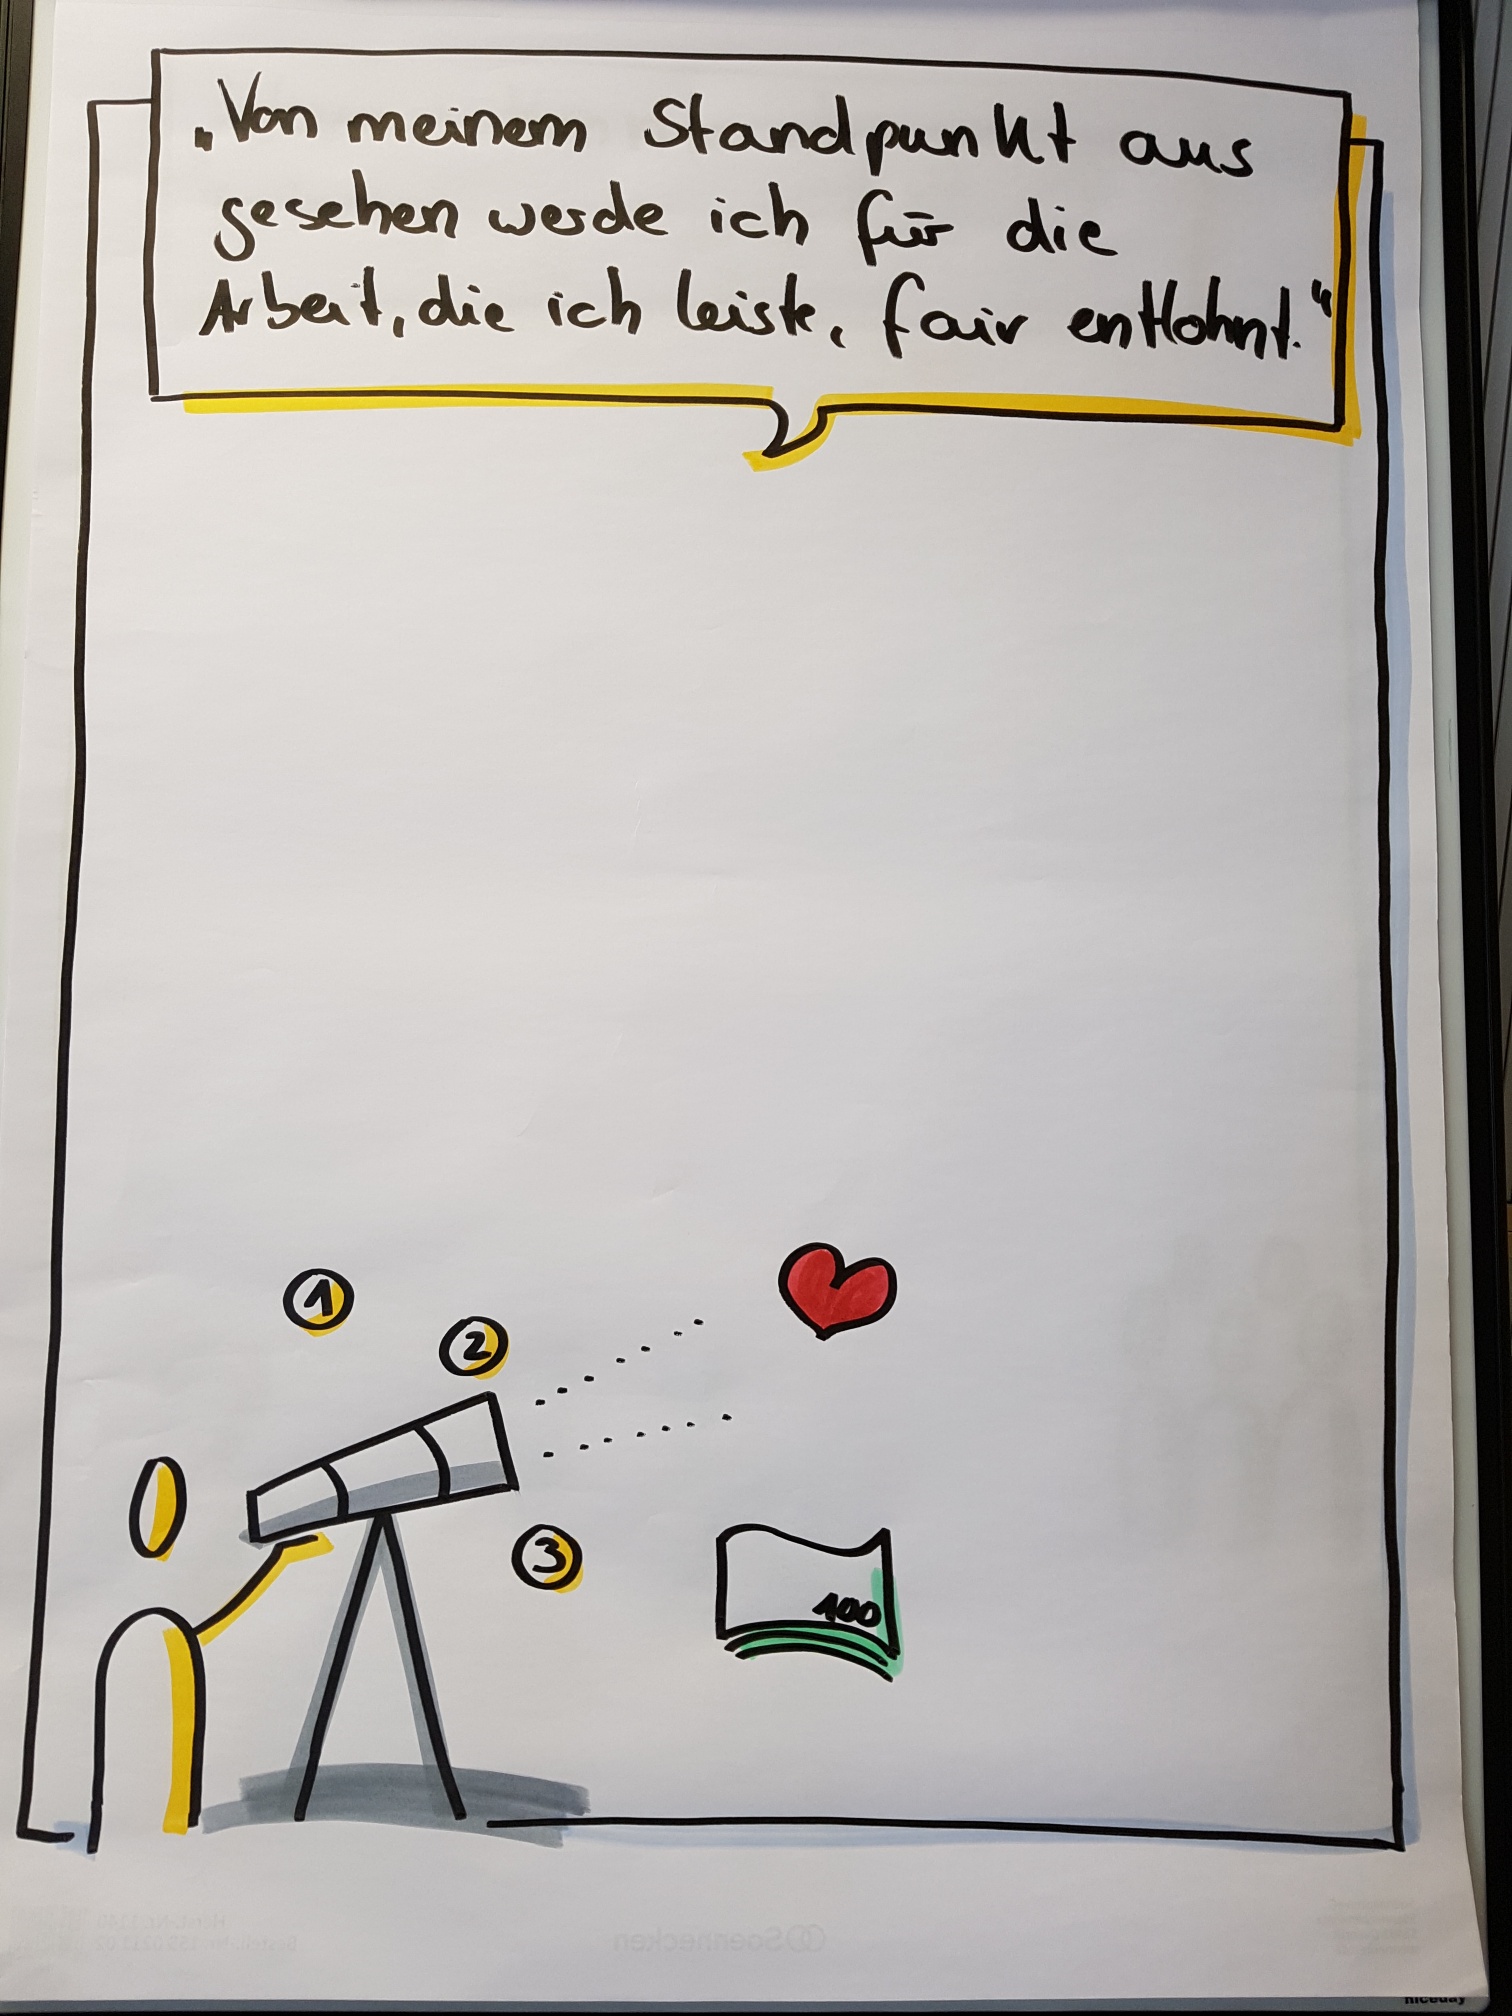 „Von meinem Standpunkt aus
gesehen werde ich für die
Arbeit, die ich leiste, fair entlohnt."
1
2
3
100
Soennecken
niceday